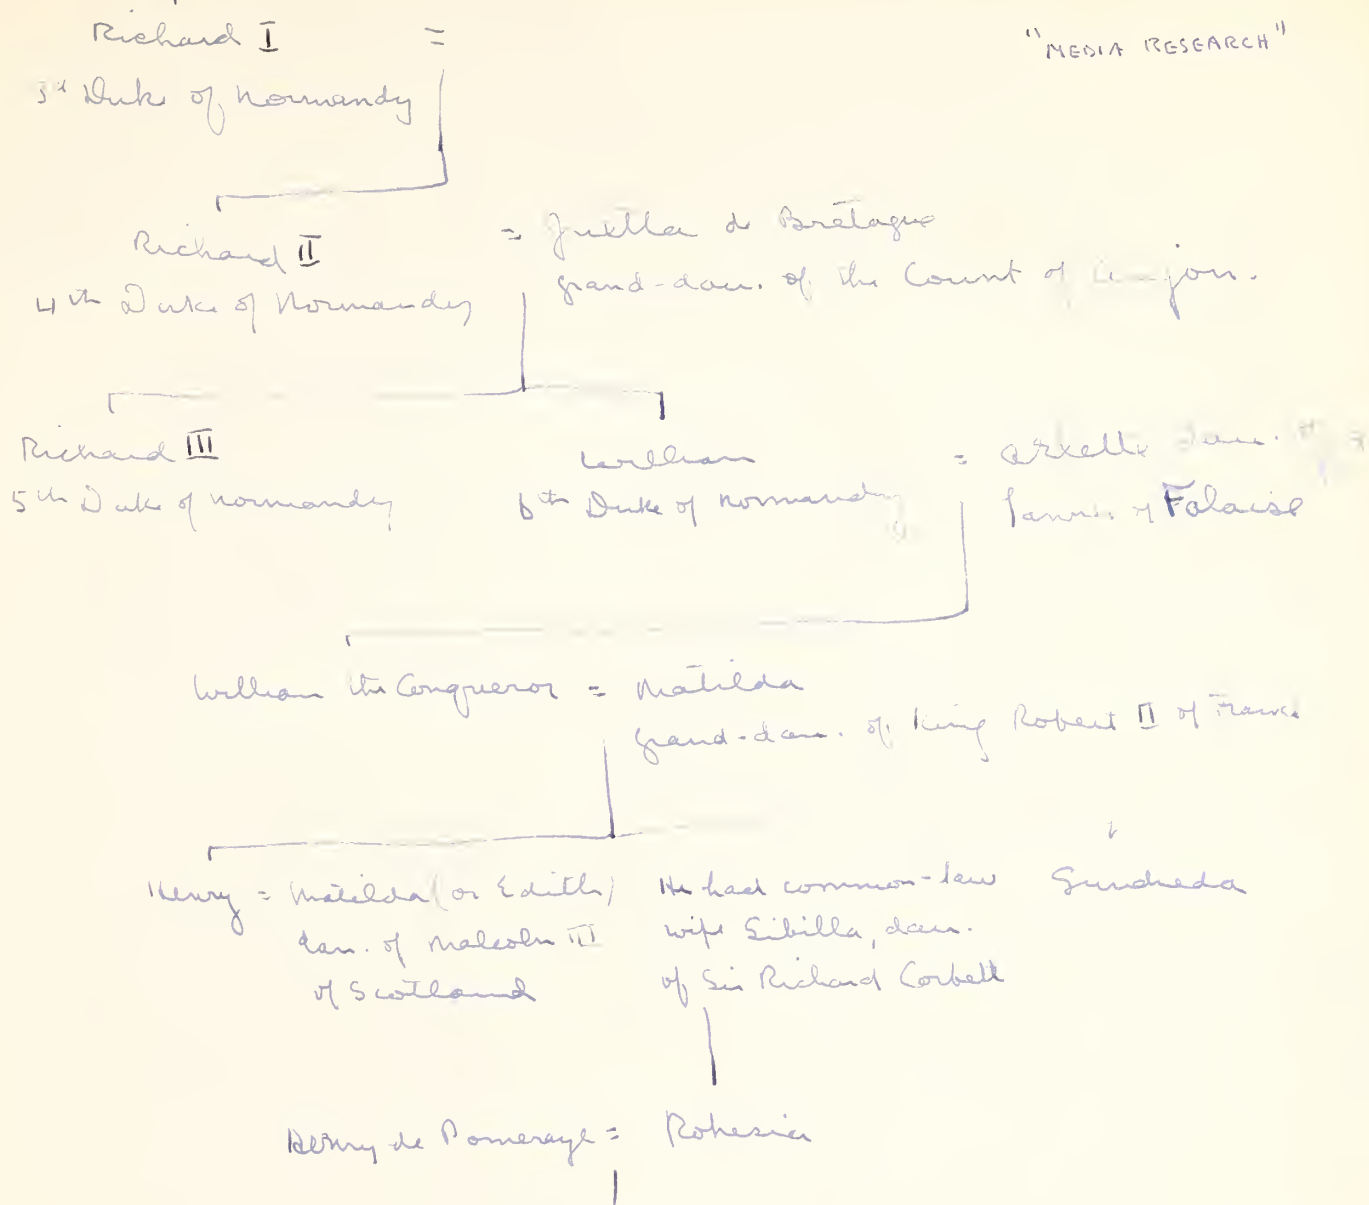 Richard I =
"MEDIA RESEARCH"
3rd Duke of Normandy
Richard II
4th Duke of Normandy
= Juetta de Bretagne
grand-dau. of the Count of
Richard III
5th Duke of Normandy
William
6th Duke of Normandy
= Arlette dau.
of Falaise
William the Conqueror = Matilda
grand-dau. of King Robert II of France
Henry = Matilda (or Edith)
dau. of Malcolm III
of Scotland
He had common-law
wife Sibilla, dau.
of Sir Richard Corbett
Gundreda
Henry de Pomeraye = Rohesia